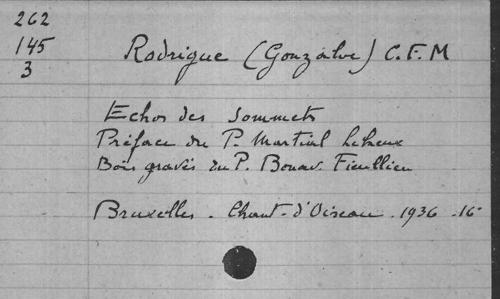 262
145
3
Rodrigue (Gonzalve) C.F.M
Echos des Sommets
Préface du P. Martial Lekeux
Bois gravés du P. Bonav. Fieullien
Bruxelles - Chant-d'Oiseau - 1936 - 16°